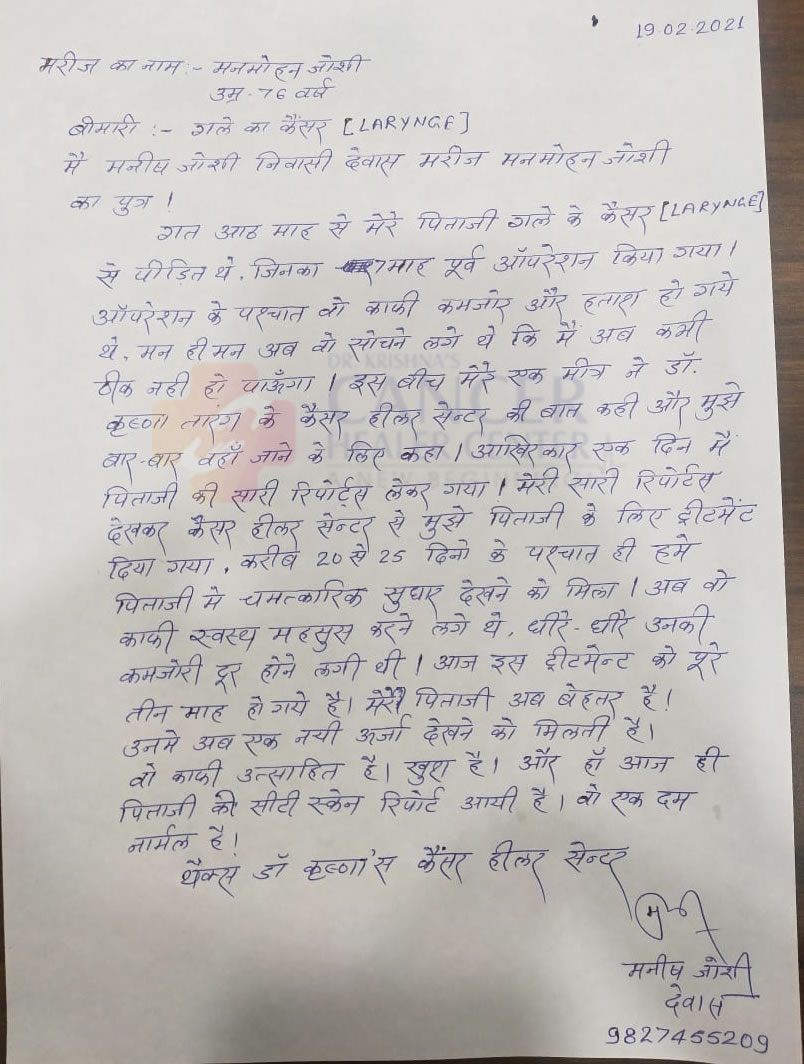 19.02.2021
मरीज का नाम :- मनमोहन जोशी
उम्र - 76 वर्ष
बीमारी :- गले का कैंसर [LARYNGE]
मै मनीष जोशी निवासी देवास मरीज मनमोहन जोशी
का पुत्र !
गत आठ माह से मेरे पिताजी गले के कैंसर [LARYNGE]
से पीड़ित थे, जिनका 7 माह पूर्व ऑपरेशन किया गया।
ऑपरेशन के पश्चात वो काफी कमजोर और हताश हो गये
थे, मन ही मन अब वो सोचने लगे थे कि मैं अब कभी
ठीक नही हो पाऊँगा । इस बीच मेरे एक मीत्र ने डॉ.
कृष्णा तारंग के कैंसर हीलर सेन्टर की बात कही और मुझे
बार-बार वहाँ जाने के लिए कहा । आखिरकार एक दिन मैं
पिताजी की सारी रिपोर्ट्स लेकर गया ! मेरी सारी रिपोर्टस
देखकर कैंसर हीलर सेन्टर से मुझे पिताजी के लिए ट्रीटमेंट
दिया गया, करीब 20 से 25 दिनो के पश्चात ही हमे
पिताजी मे चमत्कारिक सुधार देखने को मिला । अब वो
काफी स्वस्थ महसुस करने लगे थे, धीरे-धीरे उनकी
कमजोरी दूर होने लगी थी । आज इस ट्रीटमेन्ट को पूरे
तीन माह हो गये है। मेरे पिताजी अब बेहतर है !
उनमे अब एक नयी ऊर्जा देखने को मिलती है।
वो काफी उत्साहित है। खुश है। और हाँ आज ही
पिताजी की सीटी स्केन रिपोर्ट आयी है। वो एक दम
नार्मल है !
थैंक्स डॉ कृष्णा's कैंसर हीलर सेन्टर
मनीष जोशी
देवास
9827455209
DR. KRISHNA'S
CANCER
HEALER CENTER
A NEW BEGINNING